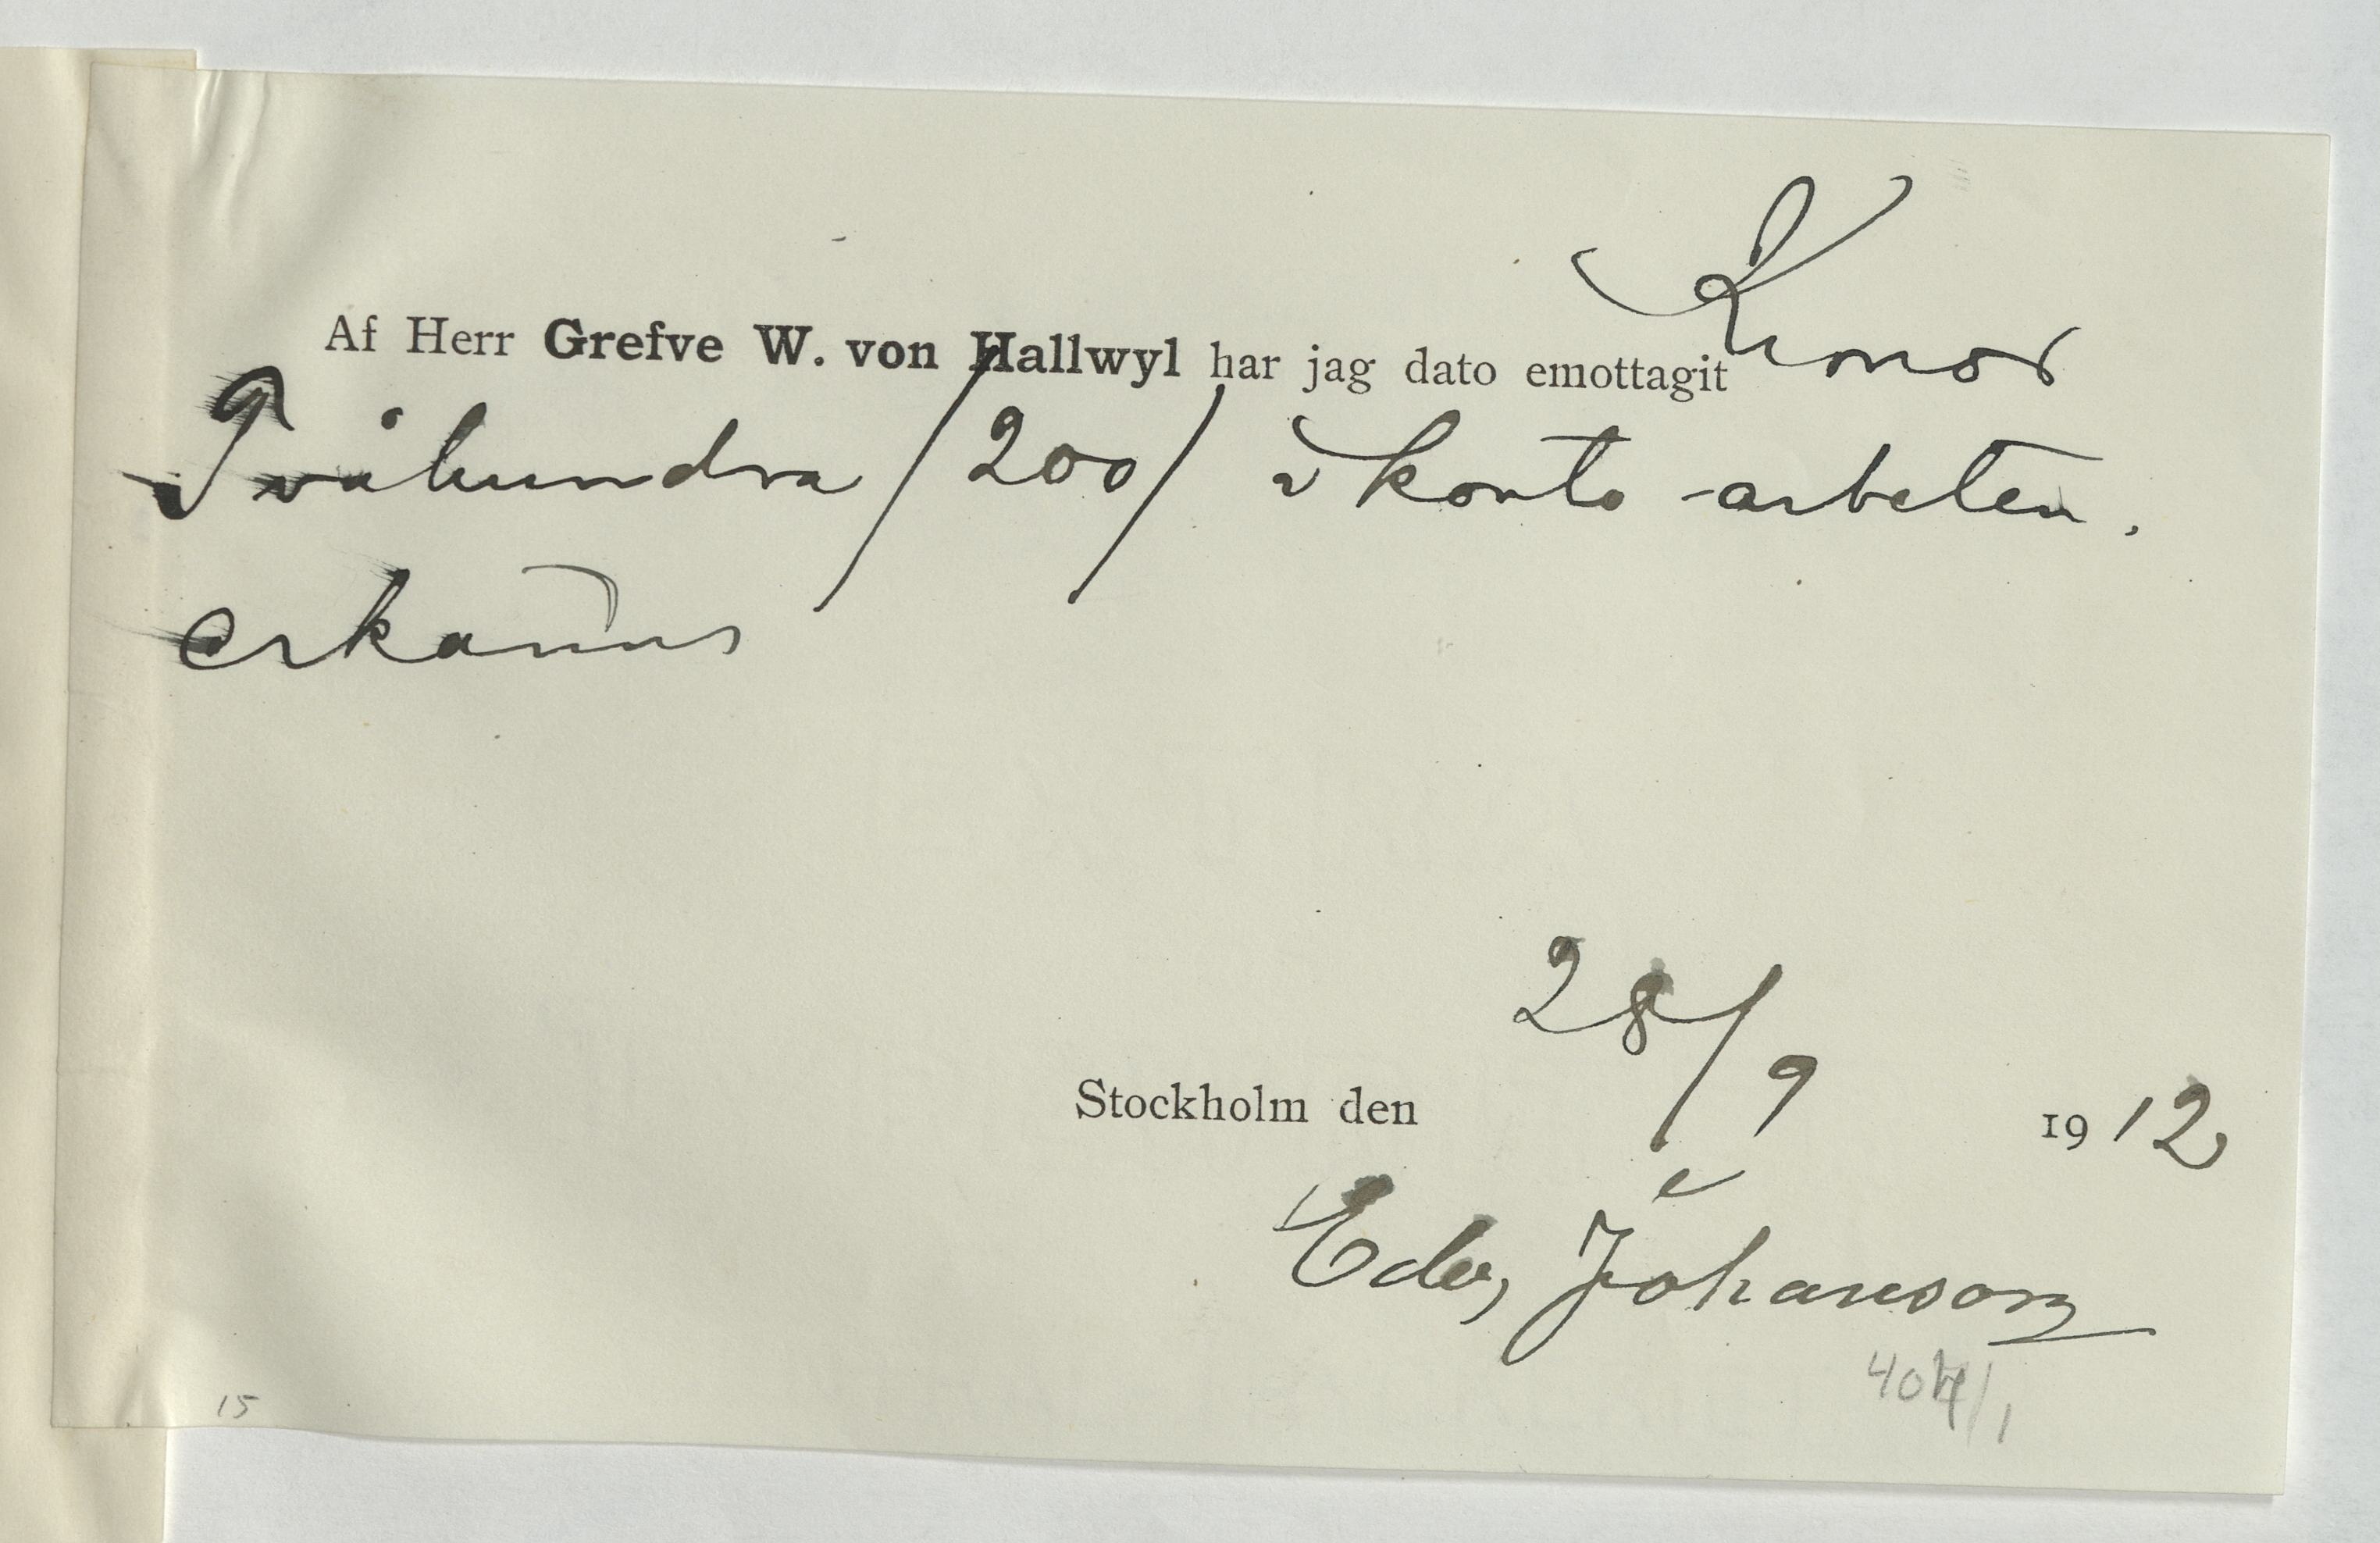 Af Herr Grefve W. von Hallwyl har jag dato emottagit Kronor
Tvåhundra /200/ à konto -arbeten.
erkännes
Stockholm den 28/9 1912
Johanson
15